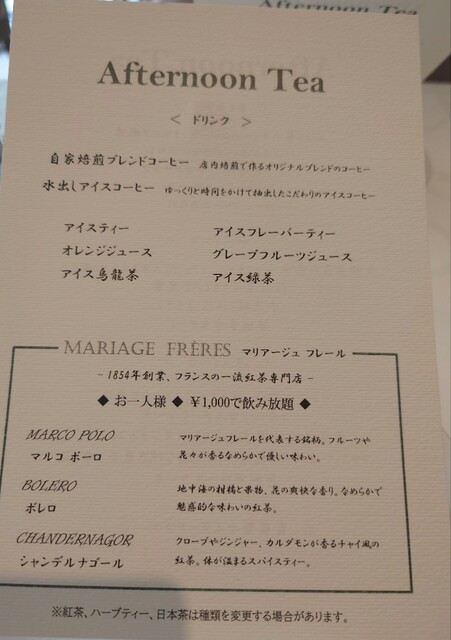 Afternoon Tea
Afternoon Tea
＜ ドリンク ＞
自家焙煎ブレンドコーヒー 店内焙煎で作るオリジナルブレンドのコーヒー
水出しアイスコーヒー ゆっくりと時間をかけて抽出したこだわりのアイスコーヒー
アイスティー アイスフレーバーティー
オレンジジュース グレープフルーツジュース
アイス烏龍茶 アイス緑茶
MARIAGE FRÈRES マリアージュ フレール
- 1854年創業、フランスの一流紅茶専門店 -
◆ お一人様 ◆ ￥1,000で飲み放題 ◆
MARCO POLO マリアージュフレールを代表する銘柄。フルーツや
マルコ ポーロ 花々が香るなめらかで優しい味わい。
BOLERO 地中海の柑橘と果物、花の爽快な香り。なめらかで
ボレロ 魅惑的な味わいの紅茶。
CHANDERNAGOR クローブやジンジャー、カルダモンが香るチャイ風の
シャンデルナゴール 紅茶。体が温まるスパイスティー。
※紅茶、ハーブティー、日本茶は種類を変更する場合があります。